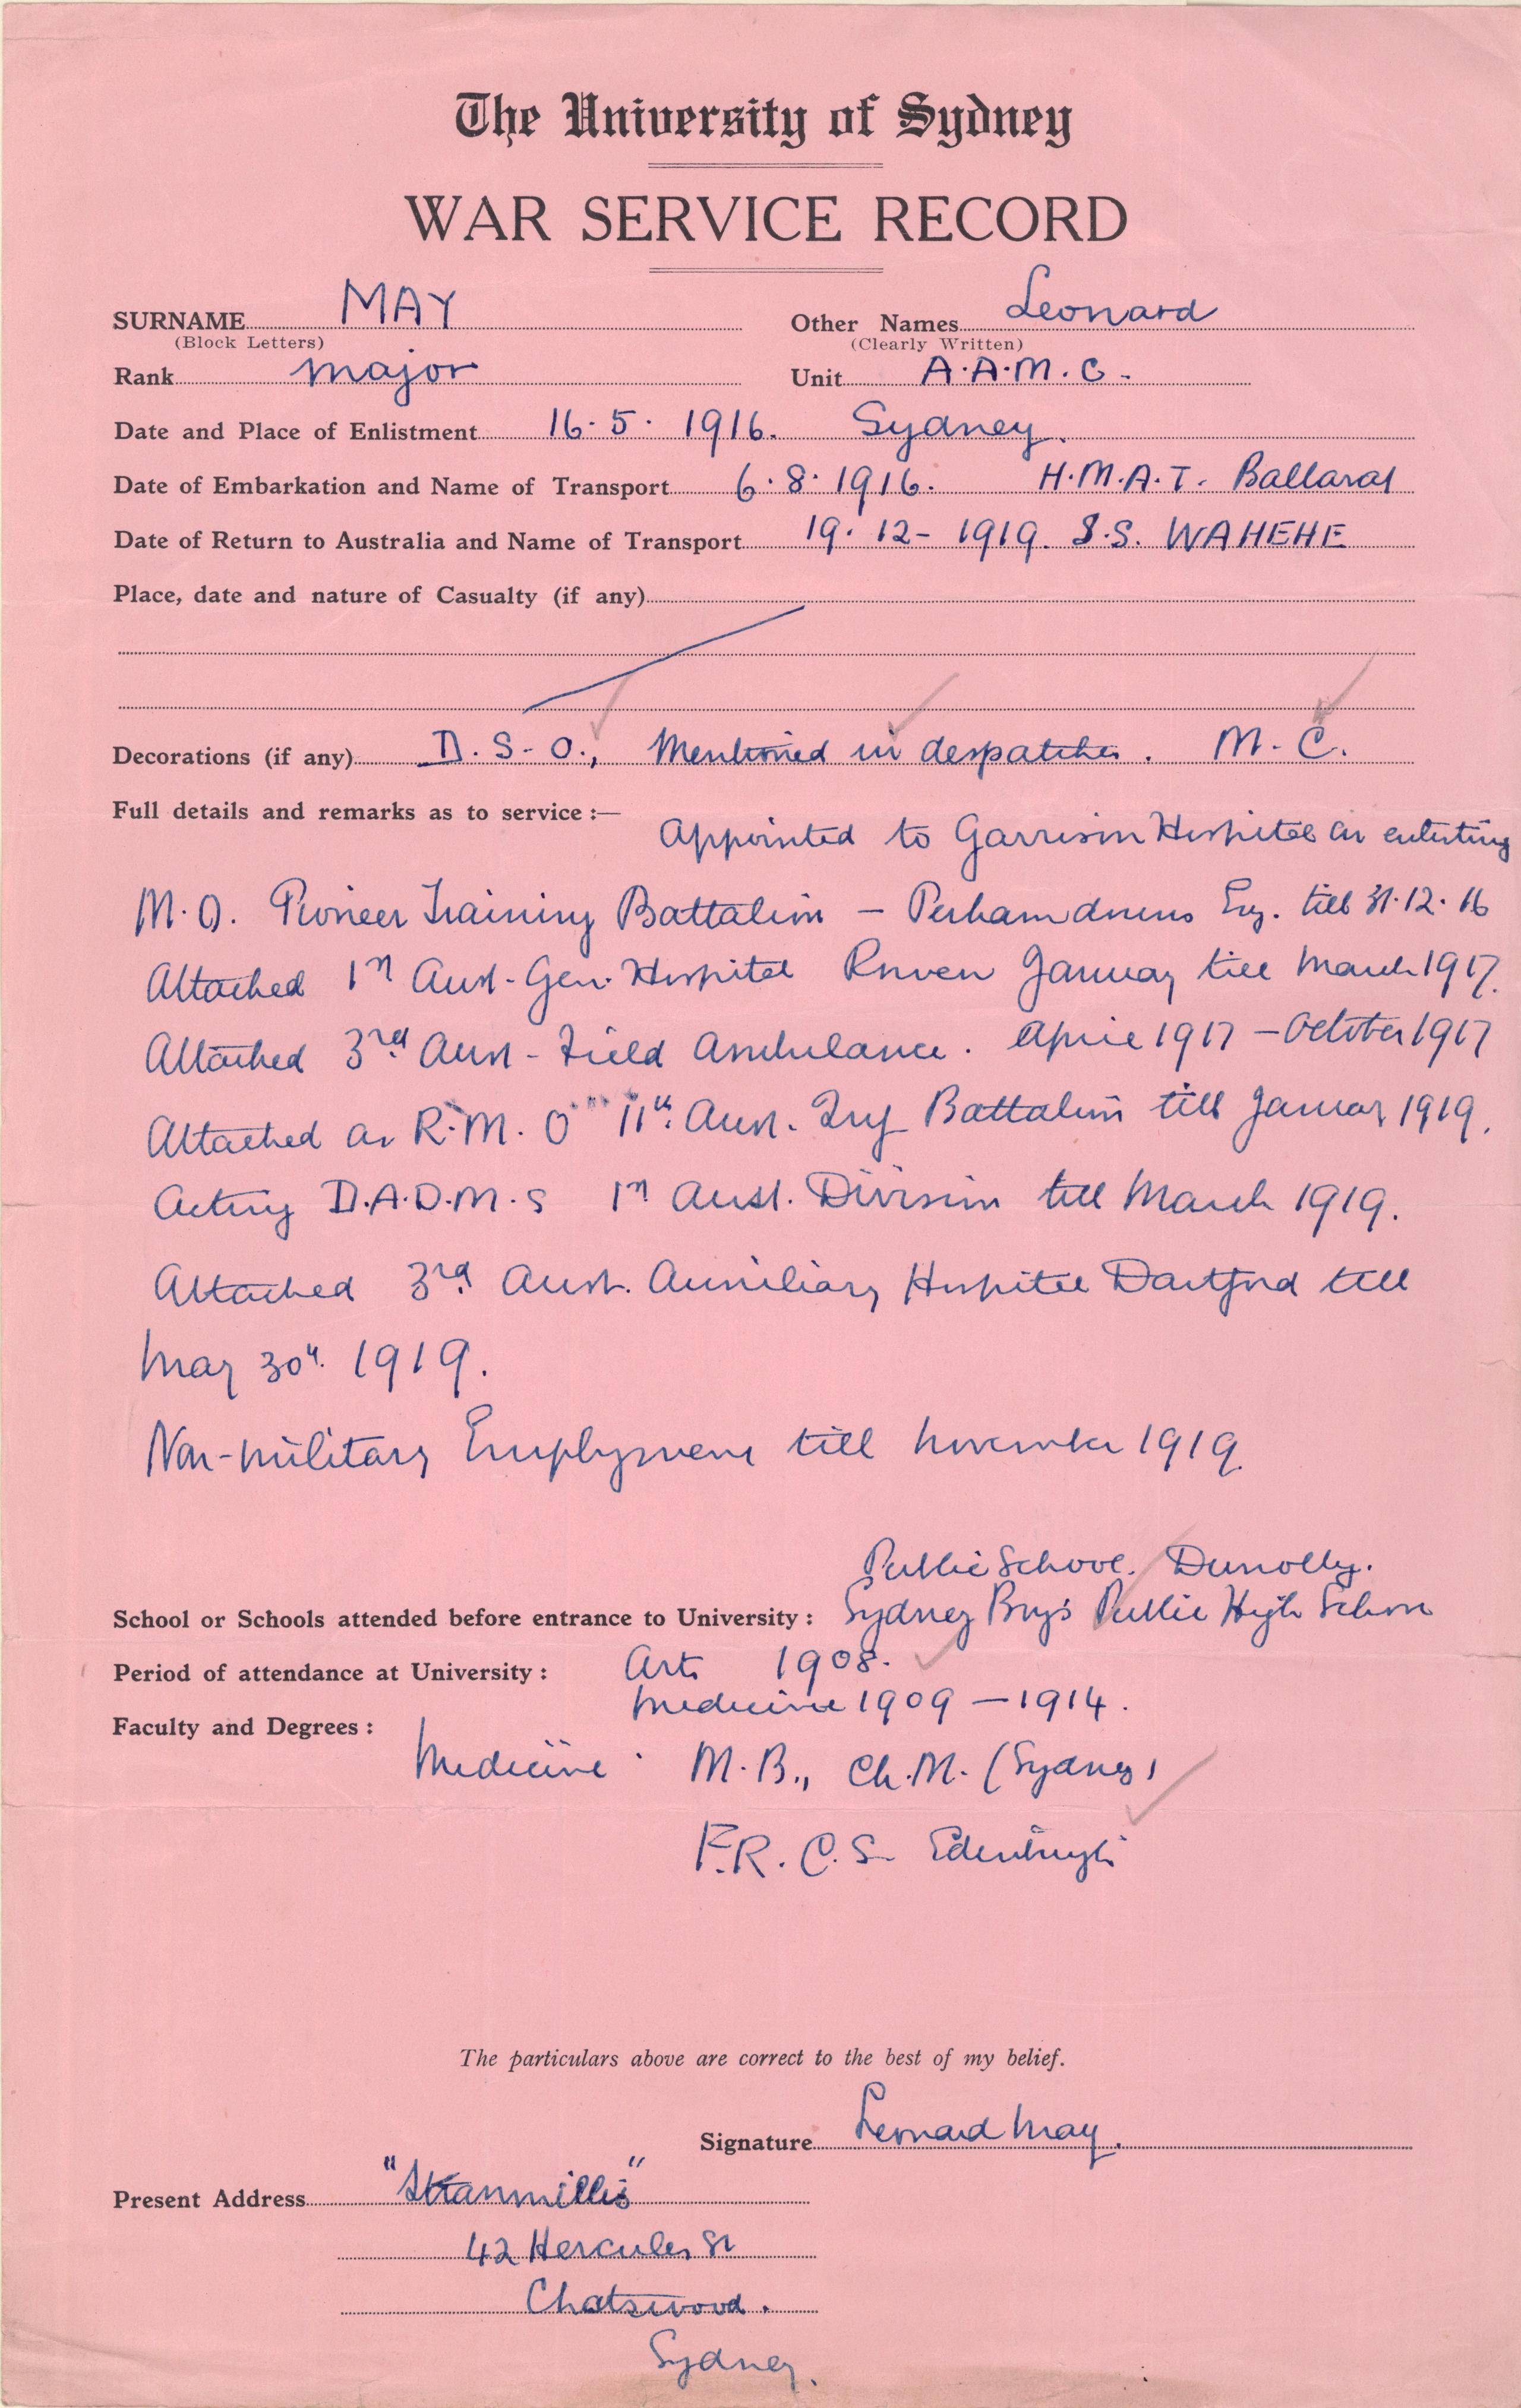 The University of Sydney
WAR SERVICE RECORD
SURNAME MAY Other Names Leonard
(Block Letters) (Clearly Written)
Rank Major Unit A.A.M.C.
Date and Place of Enlistment 16.5.1916. Sydney.
Date of Embarkation and Name of Transport 6.8.1916. H.M.A.T. Ballarat
Date of Return to Australia and Name of Transport 19.12-1919. S.S. WAHEHE
Place, date and nature of Casualty (if any)
Decorations (if any) D.S.O., Mentioned in despatches. M.C.
Full details and remarks as to service :—
Appointed to Garrison Hospital on enlisting
M.O. Pioneer Training Battalion – Perham downs Eng. till 31.12.16
Attached 1st Aust. Gen. Hospital Rouen January till March 1917.
Attached 3rd Aust- Field Ambulance. April 1917 – October 1917
Attached as R.M.O 11th Aust. Inf Battalion till January 1919.
Acting D.A.D.M.S 1st Aust. Division till March 1919.
Attached 3rd Aust. Auxiliary Hospital Dartford till
May 30th 1919.
Non-military Employment till November 1919.
Public School. Dunolly.
School or Schools attended before entrance to University : Sydney Boys Public High School
Period of attendance at University : Arts 1908.
Medicine 1909 – 1914.
Faculty and Degrees :
Medicine . M.B., Ch.M. (Sydney)
F.R.C.S. Edinburgh
The particulars above are correct to the best of my belief.
Signature Leonard May.
Present Address "Stranmillis"
42 Hercules St
Chatswood.
Sydney.